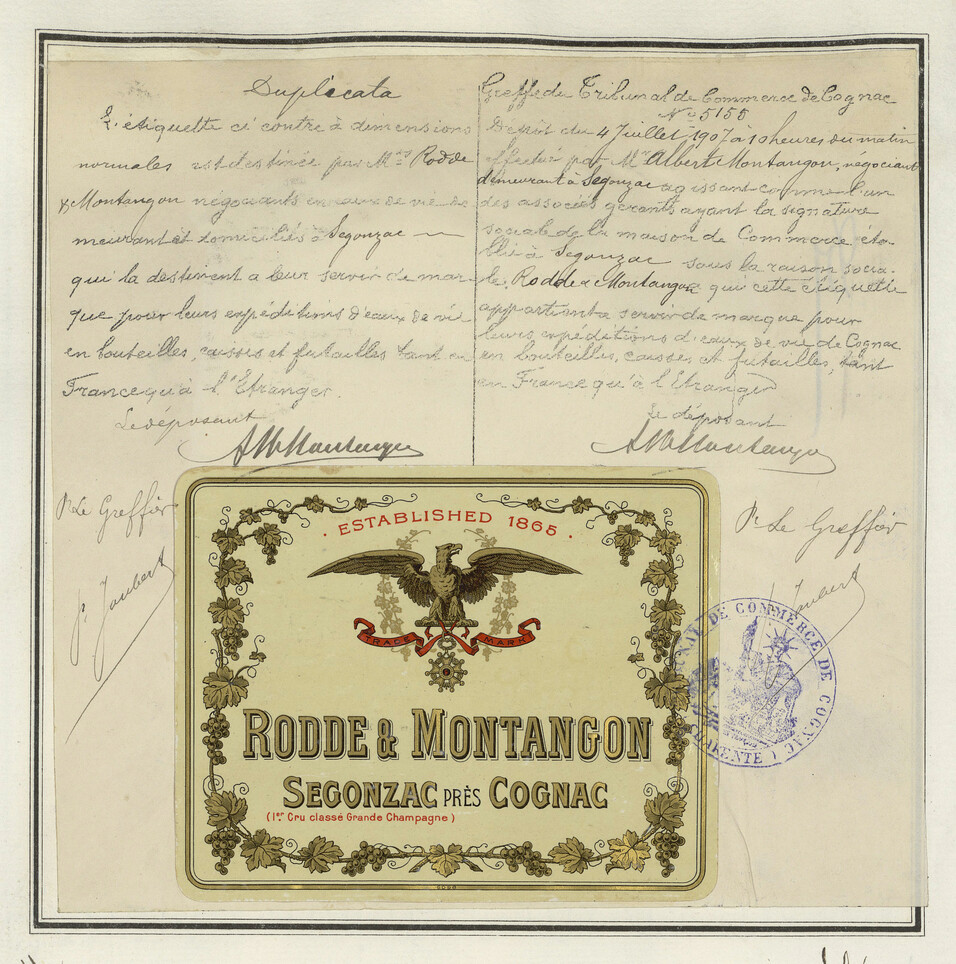 Duplicata
L'étiquette ci contre à dimensions
normales est destinée par Mrs Rodde
& Montangon négociants en eaux de vie de
meurant et domiciliés à Segonzac
qui la destinent a leur servir de mar
que pour leurs expéditions d'eaux de vie
en bouteilles, caisses et futailles tant en
France qu'à l'Etranger.
Le déposant
Greffe du Tribunal de Commerce de Cognac
No 5155
Dépôt du 4 Juillet 1907 à 10 heures du matin
effectué par Mr Albert Montangon, négociant
demeurant à Segonzac agissant comme l'un
des associés gérants ayant la signature
sociale de la maison de Commerce éta-
blie à Segonzac sous la raison socia-
le Rodde & Montangon que cette étiquette
appartient a servir de marque pour
leurs expéditions d'eaux de vie de Cognac
en bouteilles, caisses et futailles, tant
en France qu'à l'Etranger
Le déposant
Pr Le Greffier
Pr Le Greffier
ESTABLISHED 1865
TRADE MARK
RODDE & MONTANGON
SEGONZAC PRÈS COGNAC
(1er Cru classé Grande Champagne)
DE COMMERCE DE COGNAC